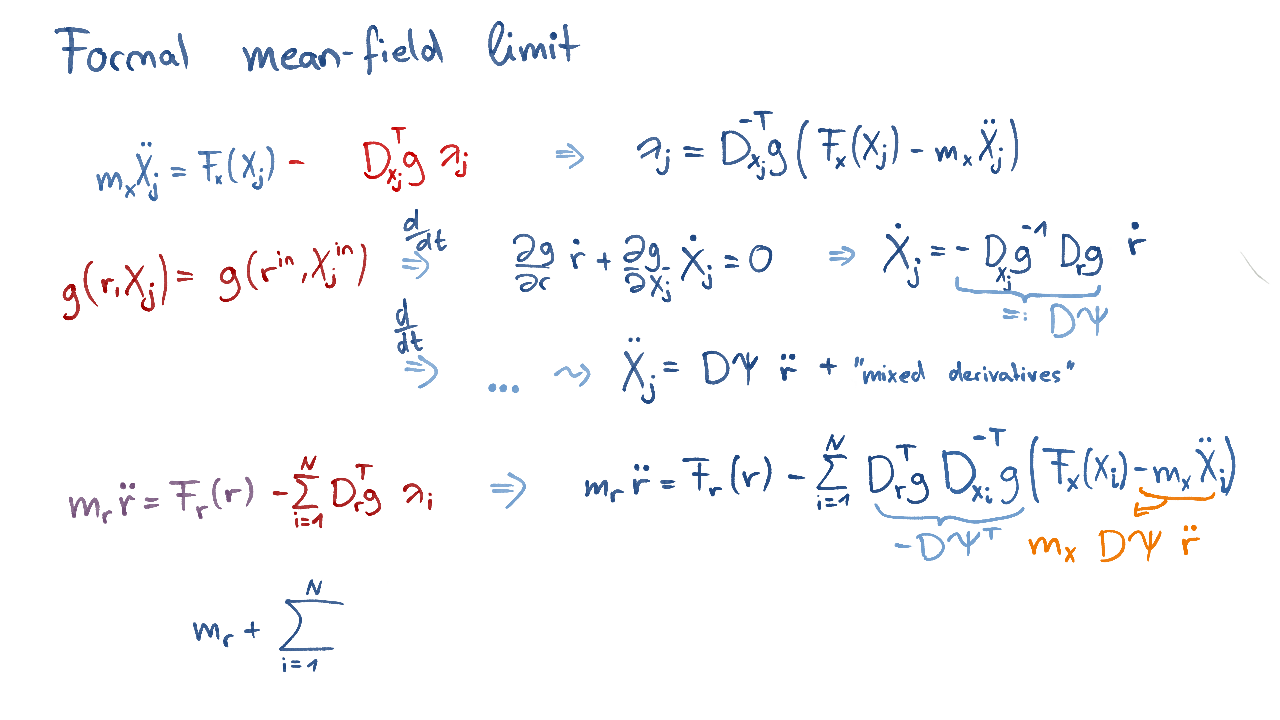 Formal mean-field limit
m_x Ẍ_j = F_x(X_j) - D_{x_j}^T g λ_j ⇒ λ_j = D_{x_j}^{-T} g (F_x(X_j) - m_x Ẍ_j)
g(r, X_j) = g(r^{in}, X_j^{in}) d/dt ⇒ ∂g/∂r ṙ + ∂g/∂X_j Ẋ_j = 0 ⇒ Ẋ_j = - D_{x_j} g^{-1} D_r g ṙ
=: DΨ
d/dt ⇒ ... ⇝ Ẍ_j = DΨ r̈ + "mixed derivatives"
m_r r̈ = F_r(r) - ∑_{i=1}^N D_r^T g λ_i ⇒ m_r r̈ = F_r(r) - ∑_{i=1}^N D_r^T g D_{x_i}^{-T} g (F_x(X_i) - m_x Ẍ_i)
-DΨ^T m_x DΨ r̈
m_r + ∑_{i=1}^N